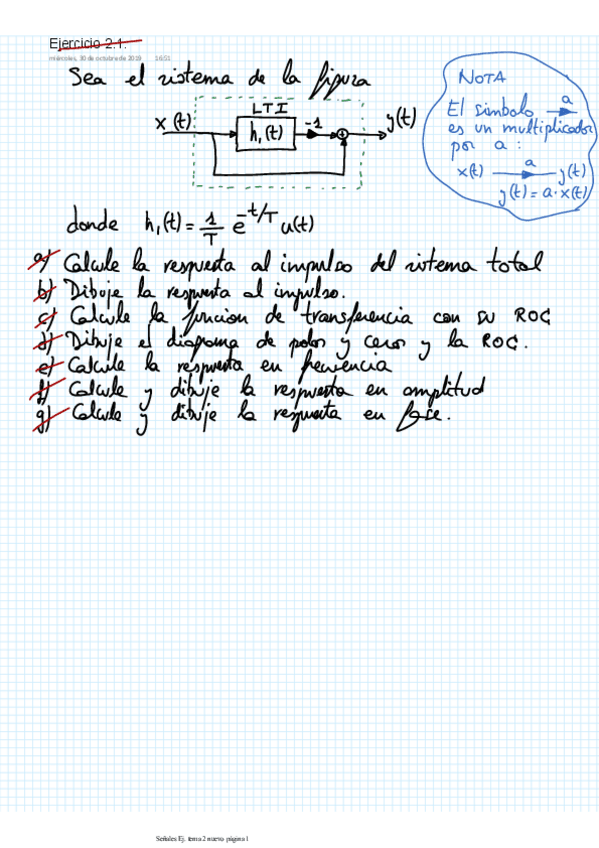 Ejercicio 2.1.
miércoles, 30 de octubre de 2019 16:51
Sea el sistema de la figura
LTI
x(t) h₁(t) -1 + y(t)
NOTA
El símbolo a
es un multiplicador
por a :
x(t) a y(t)
y(t) = a · x(t)
donde h₁(t) = 1/T e^-t/T u(t)
a) Calcule la respuesta al impulso del sistema total
b) Dibuje la respuesta al impulso.
c) Calcule la función de transferencia con su ROC
d) Dibuje el diagrama de polos y ceros y la ROC.
e) Calcule la respuesta en frecuencia
f) Calcule y dibuje la respuesta en amplitud
g) Calcule y dibuje la respuesta en fase.
Señales Ej. tema 2 nuevo página 1